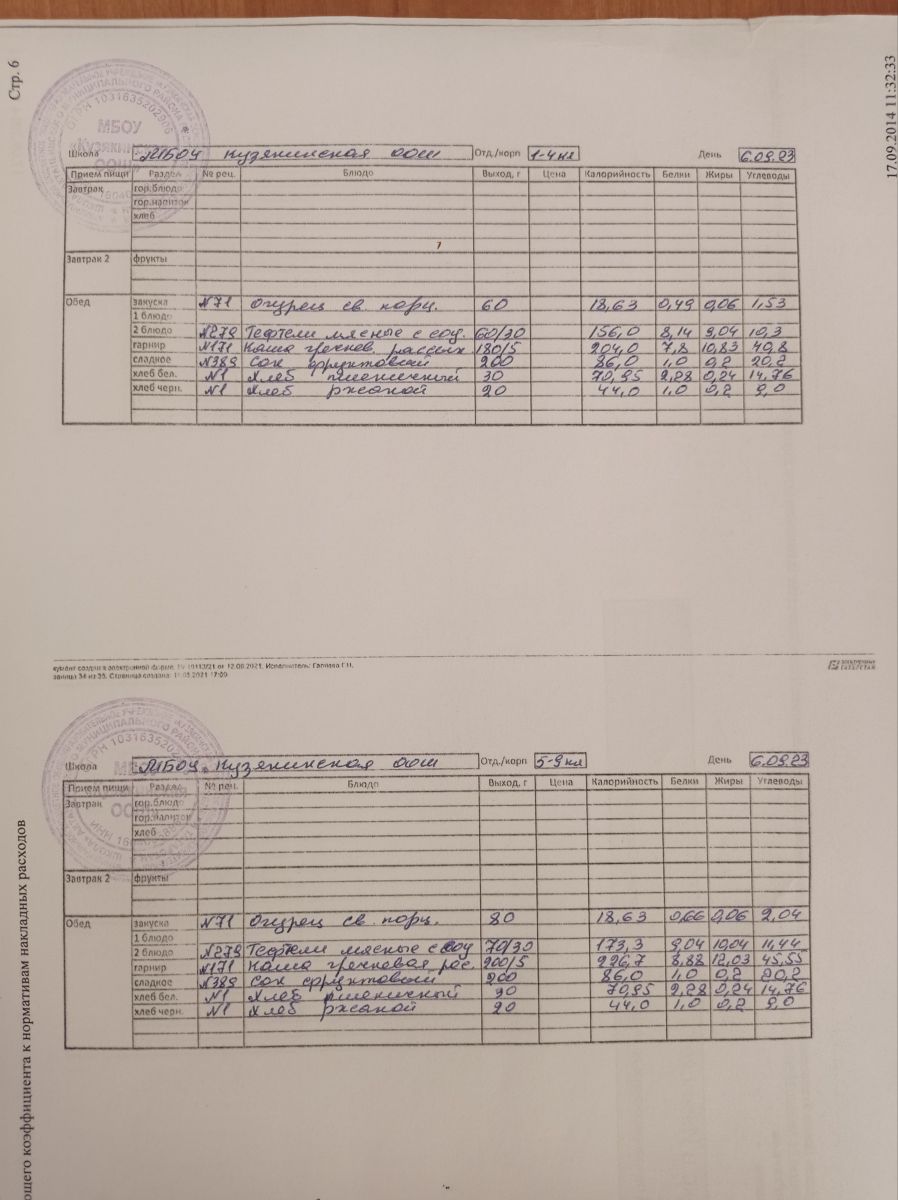 Стр. 6
17.09.2014 11:32:33
ОГРН 1031635202906
МБОУ
Школа МБОУ Кузякинская ООШ Отд./корп 1-4 кл День 6.09.23
Прием пищи Раздел № рец. Блюдо Выход, г Цена Калорийность Белки Жиры Углеводы
Завтрак гор.блюдо
гор.напиток
хлеб
Завтрак 2 фрукты
Обед закуска №71 Огурец св. порц. 60 18,63 0,49 0,06 1,53
1 блюдо
2 блюдо №279 Тефтели мясные с соу. 60/30 156,0 8,14 9,04 10,3
гарнир №171 Каша гречнев. рассып 180/5 204,0 7,8 10,83 40,8
сладкое №389 Сок фруктовый 200 86,0 1,0 0,2 20,2
хлеб бел. №1 Хлеб пшеничный 30 70,95 2,28 0,24 14,76
хлеб черн. №1 Хлеб ржаной 20 44,0 1,0 0,2 9,0
кумент создан в электронной форме. от 12.08.2021. Исполнитель:
аница 34 из 35. Страница создана: 17:00
ЭЛЕКТРОННЫЙ
ТАТАРСТАН
Школа МБОУ Кузякинская ООШ Отд./корп 5-9 кл День 6.09.23
Прием пищи Раздел № рец. Блюдо Выход, г Цена Калорийность Белки Жиры Углеводы
Завтрак гор.блюдо
гор.напиток
хлеб
Завтрак 2 фрукты
Обед закуска №71 Огурец св. порц. 80 18,63 0,66 0,06 2,04
1 блюдо
2 блюдо №279 Тефтели мясные с соу 70/30 173,3 9,04 10,04 11,44
гарнир №171 Каша гречневая рас. 200/5 226,7 8,88 12,03 45,55
сладкое №389 Сок фруктовый 200 86,0 1,0 0,2 20,2
хлеб бел. №1 Хлеб пшеничный 30 70,95 2,28 0,24 14,76
хлеб черн. №1 Хлеб ржаной 20 44,0 1,0 0,2 9,0
ющего коэффициента к нормативам накладных расходов